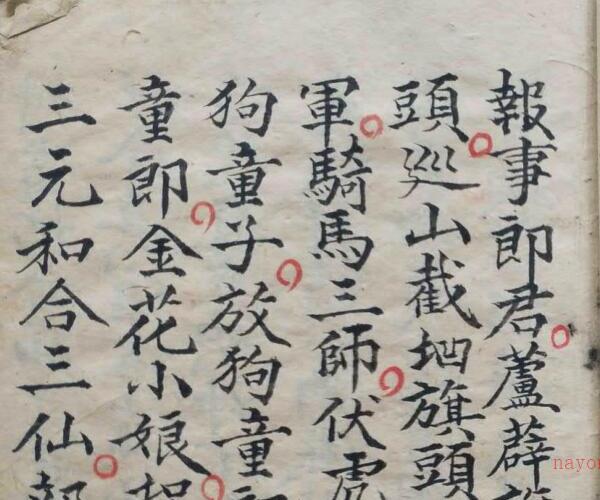 報事郎君蘆薜
頭巡山截𪣻旗頭
軍騎馬三師伏虎
狗童子放狗童
童郎金花小娘
三元和合三仙
nayo